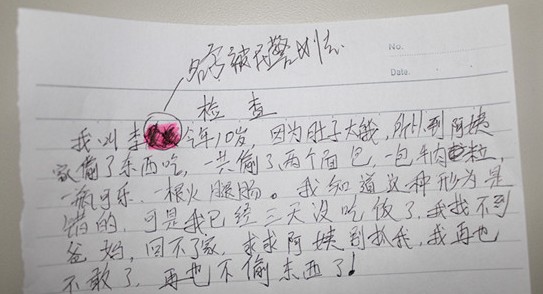 名字被民警划去
No.
Date.
检 查
我叫李 今年10岁，因为肚子大饿，所以到阿姨
家偷了东西吃，一共偷了两个面包，一包牛肉粒，
一瓶可乐，一根火腿肠。我知道这种形为是
错的，可是我已经三天没吃饭了，我找不到
爸妈，回不了家，求求阿姨别抓我，我再也
不敢了，再也不偷东西了！